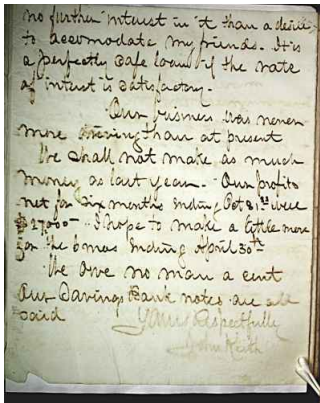 no further interest in it than a desire
to accomodate my friends. It is
a perfectly safe loan if the rate
of interest is satisfactory.
Our business was never
more thriving than at present
We shall not make as much
money as last year. Our profits
net for six months Ending Oct 31st were
$27000- I hope to make a little more
for the 6 mos Ending April 30th
We owe no man a cent
Our Savings Bank notes are all
paid
Yours Respectfully
John Keith